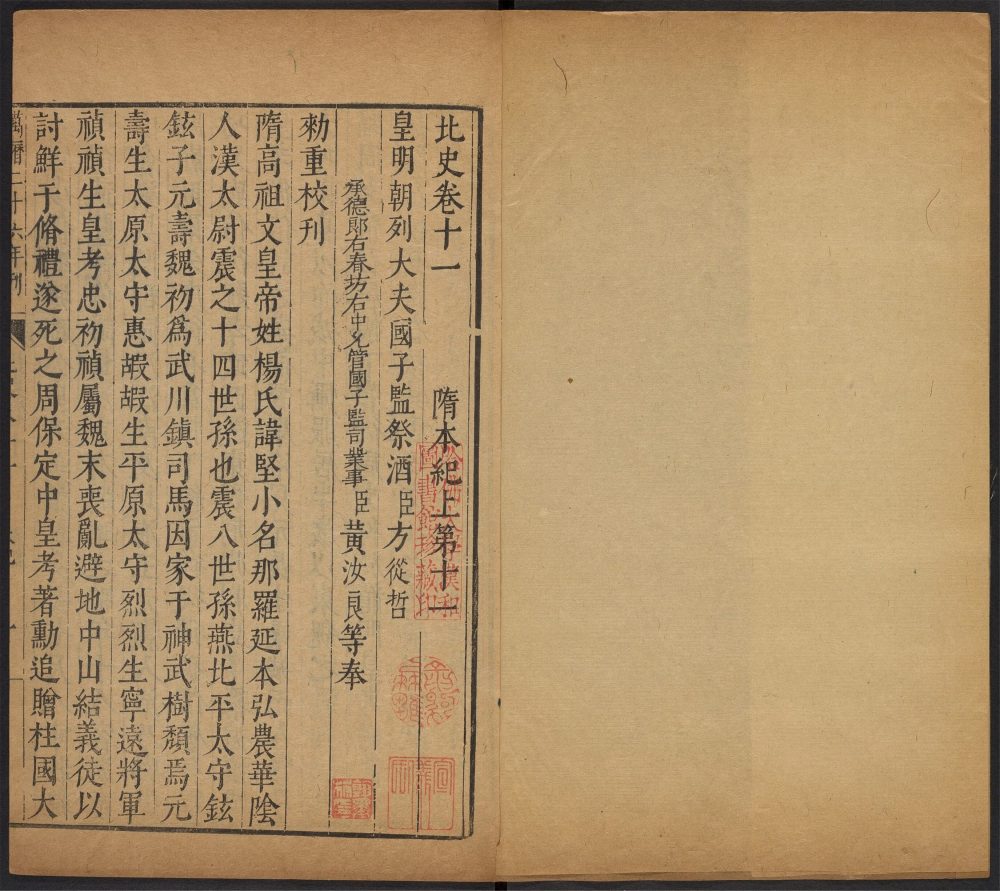 北史卷十一　隋本紀上第十一
皇明朝列大夫國子監祭酒臣方從哲
承德郎右春坊右中允管國子監司業事臣黃汝良等奉
勑重校刊
隋高祖文皇帝姓楊氏諱堅小名那羅延本弘農華陰
人漢太尉震之十四世孫也震八世孫燕北平太守鉉
鉉子元壽魏初爲武川鎮司馬因家于神武樹頹焉元
壽生太原太守惠嘏嘏生平原太守烈烈生寧遠將軍
禎禎生皇考忠初禎屬魏末喪亂避地中山結義徒以
討鮮于脩禮遂死之周保定中皇考著勳追贈柱國大
萬曆二十六年刊
哈佛大學漢和圖書館珍藏印